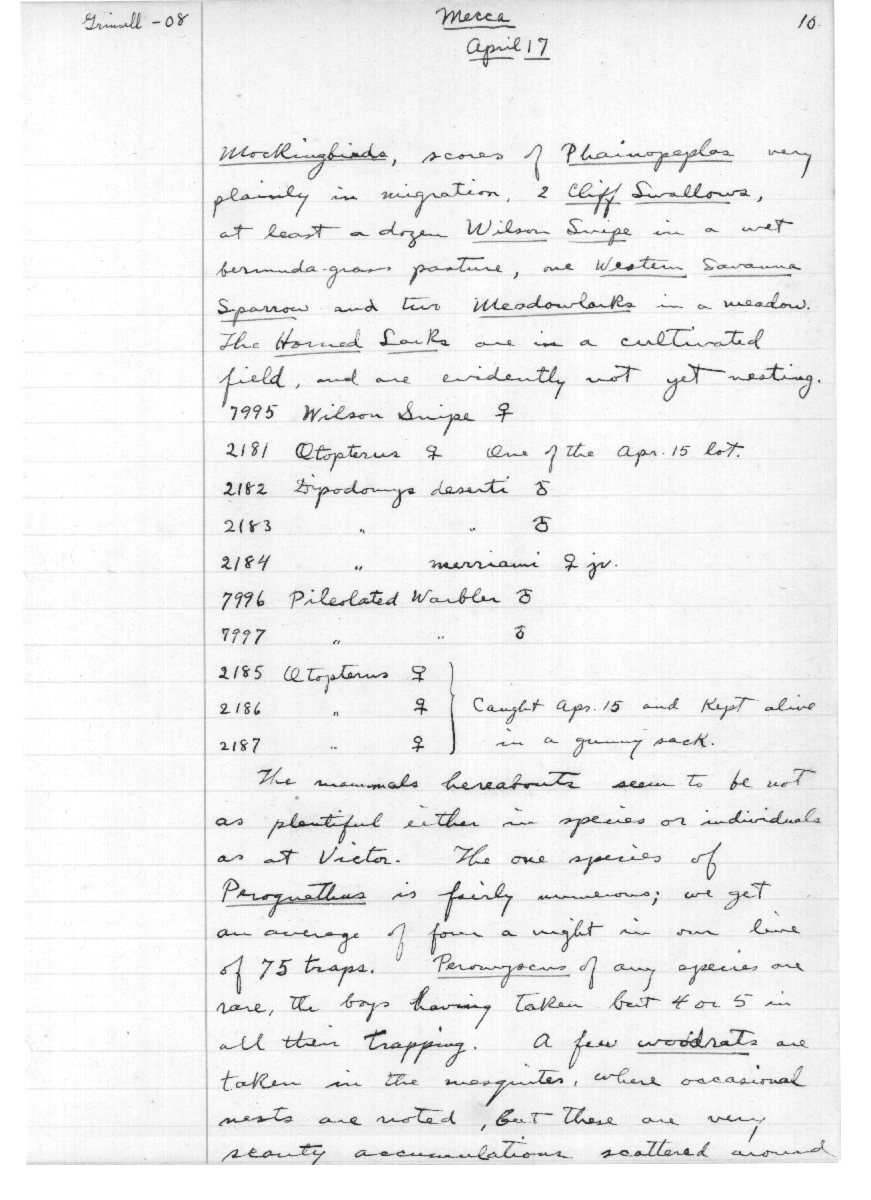 Grinnell - 08
Mecca
10.
April 17
Mockingbirds, scores of Phainopeplas very
plainly in migration, 2 Cliff Swallows,
at least a dozen Wilson Snipe in a wet
bermuda-grass pasture, one Western Savanna
Sparrow and two Meadowlarks in a meadow.
The Horned Larks are in a cultivated
field, and are evidently not yet nesting.
7995 Wilson Snipe ♀
2181 Otopterus ♀ One of the Apr. 15 lot.
2182 Dipodomys deserti ♂
2183 " " ♂
2184 " merriami ♀ jv.
7996 Pileolated Warbler ♂
7997 " " ♂
2185 Otopterus ♀
2186 " ♀ Caught Apr. 15 and kept alive
2187 " ♀ in a gunny sack.
The mammals hereabouts seem to be not
as plentiful either in species or individuals
as at Victor. The one species of
Perognathus is fairly numerous; we get
an average of four a night in our line
of 75 traps. Peromyscus of any species are
rare, the boys having taken but 4 or 5 in
all their trapping. A few woodrats are
taken in the mesquites, where occasional
nests are noted, but these are very
scanty accumulations scattered around